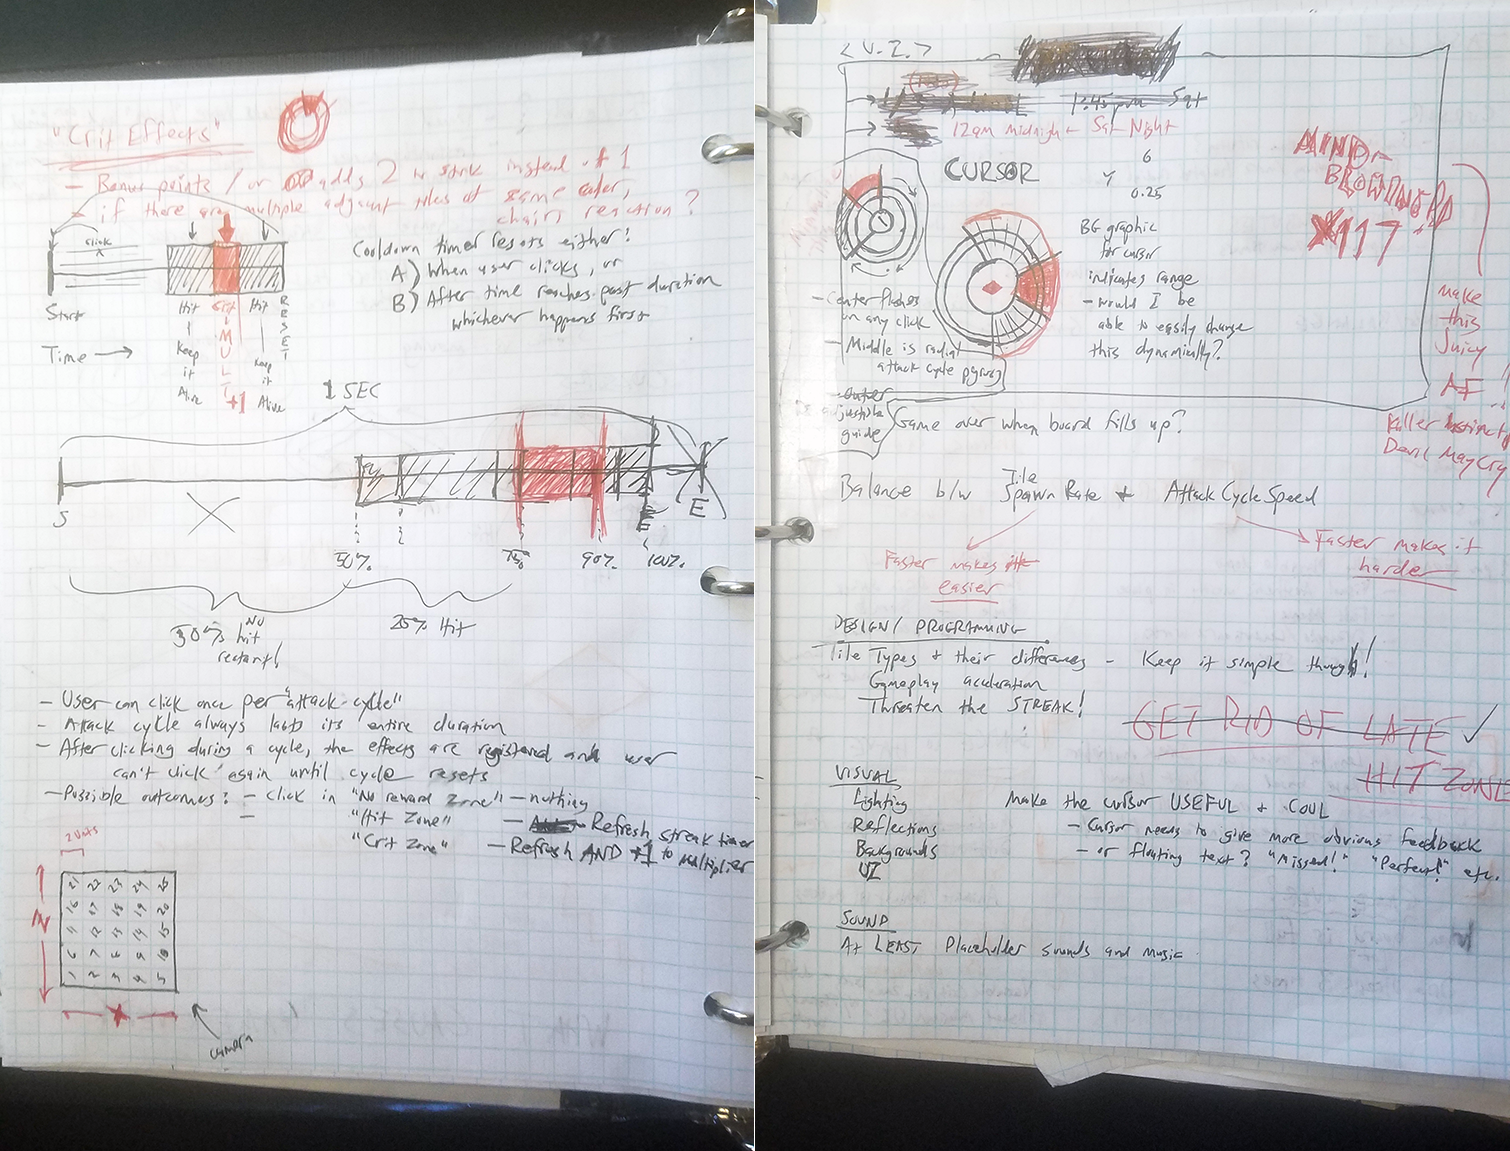 "Crit Effects"
- Bonus points / or adds 2 to streak instead of 1
- if there are multiple adjacent tiles of same color,
chain reaction?
click
X
Start
Hit
Crit
Hit
RESET
Keep
it
Alive
MULTI
+1
Keep
it
Alive
Time →
Cooldown timer resets either:
A) When user clicks, or
B) After time reaches past duration
whichever happens first
1 SEC
S
X
E
E
50%
75%
90%
100%
50% NO
hit
restart!
25% Hit
- User can click once per "attack-cycle"
- Attack cycle always lasts its entire duration
- After clicking during a cycle, the effects are registered and user
can't click again until cycle resets
- Possible outcomes: - click in "No reward Zone" - nothing
- "Hit Zone" - Refresh streak timer
"Crit Zone" - Refresh AND +1 to multiplier
2 units
21 22 23 24 25
16 17 18 19 20
11 12 13 14 15
6 7 8 9 10
1 2 3 4 5
Z
X
camera
1:45pm Sat
12am midnight Sat Night
CURSOR
6
Y
0.25
MIND-
BLOWING
x117
BG graphic
for cursor
indicates range
- would I be
able to easily change
this dynamically?
- Center flashes
on any click
- Middle is radial
attack cycle
- outer
adjustable
guide
make
this
Juicy
AF
Killer Instinct
Devil May Cry
Game over when board fills up?
Balance b/w Tile Spawn Rate + Attack Cycle Speed
Faster makes it
easier
Faster makes it
harder
DESIGN/PROGRAMMING
Tile Types + their differences - Keep it simple though!
Gameplay acceleration
Threaten the STREAK!
GET RID OF LATE ✓
HIT ZONE
VISUAL
Lighting
Reflections
Backgrounds
UI
Make the cursor USEFUL + COOL
- Cursor needs to give more obvious feedback
- or floating text? "Missed!" "Perfect!" etc.
SOUND
At LEAST Placeholder sounds and music